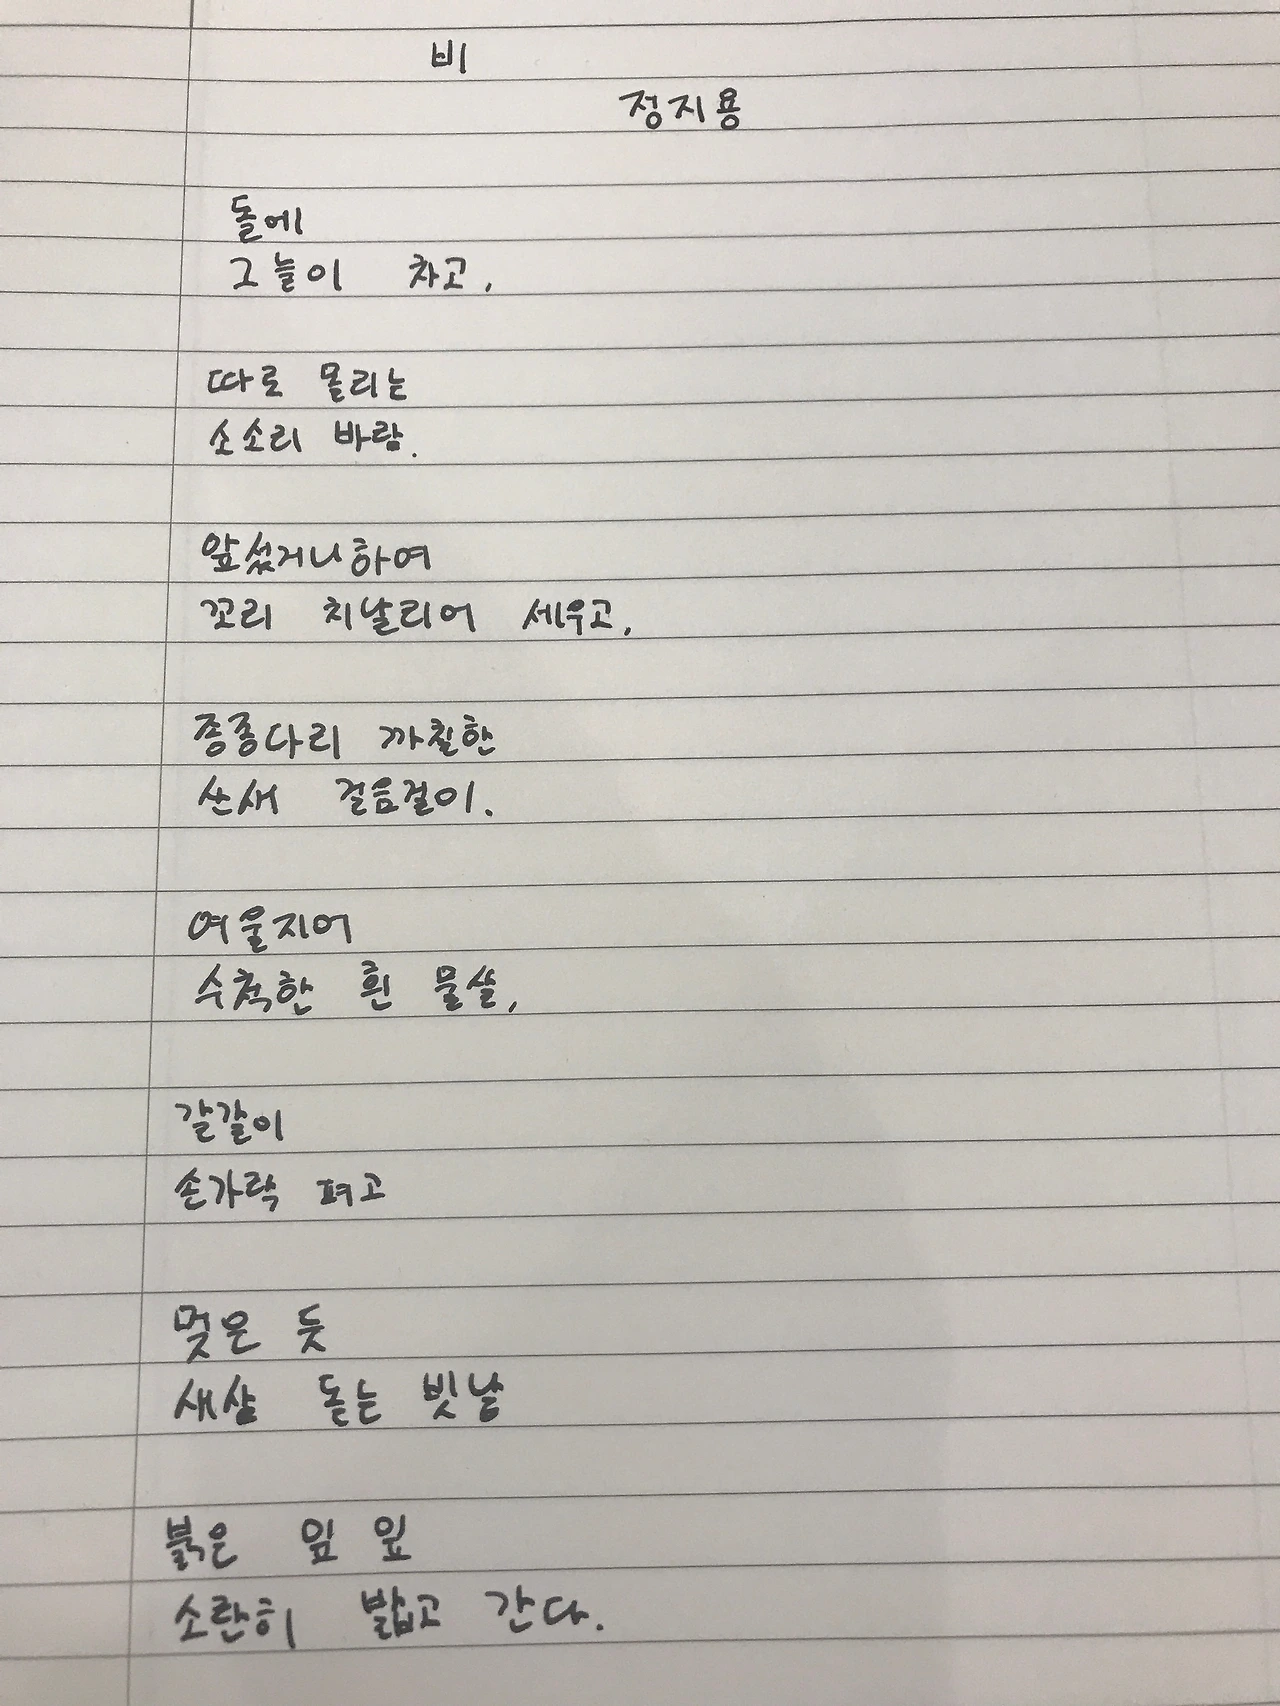 비
정지용
돌에
그늘이 차고,
따로 몰리는
소소리 바람.
앞섰거니하여
꼬리 치날리어 세우고,
종종다리 까칠한
산새 걸음걸이.
여울지어
수척한 흰 물살,
갈갈이
손가락 펴고
멎은 듯
새삼 돋는 빗날
붉은 잎 잎
소란히 밟고 간다.